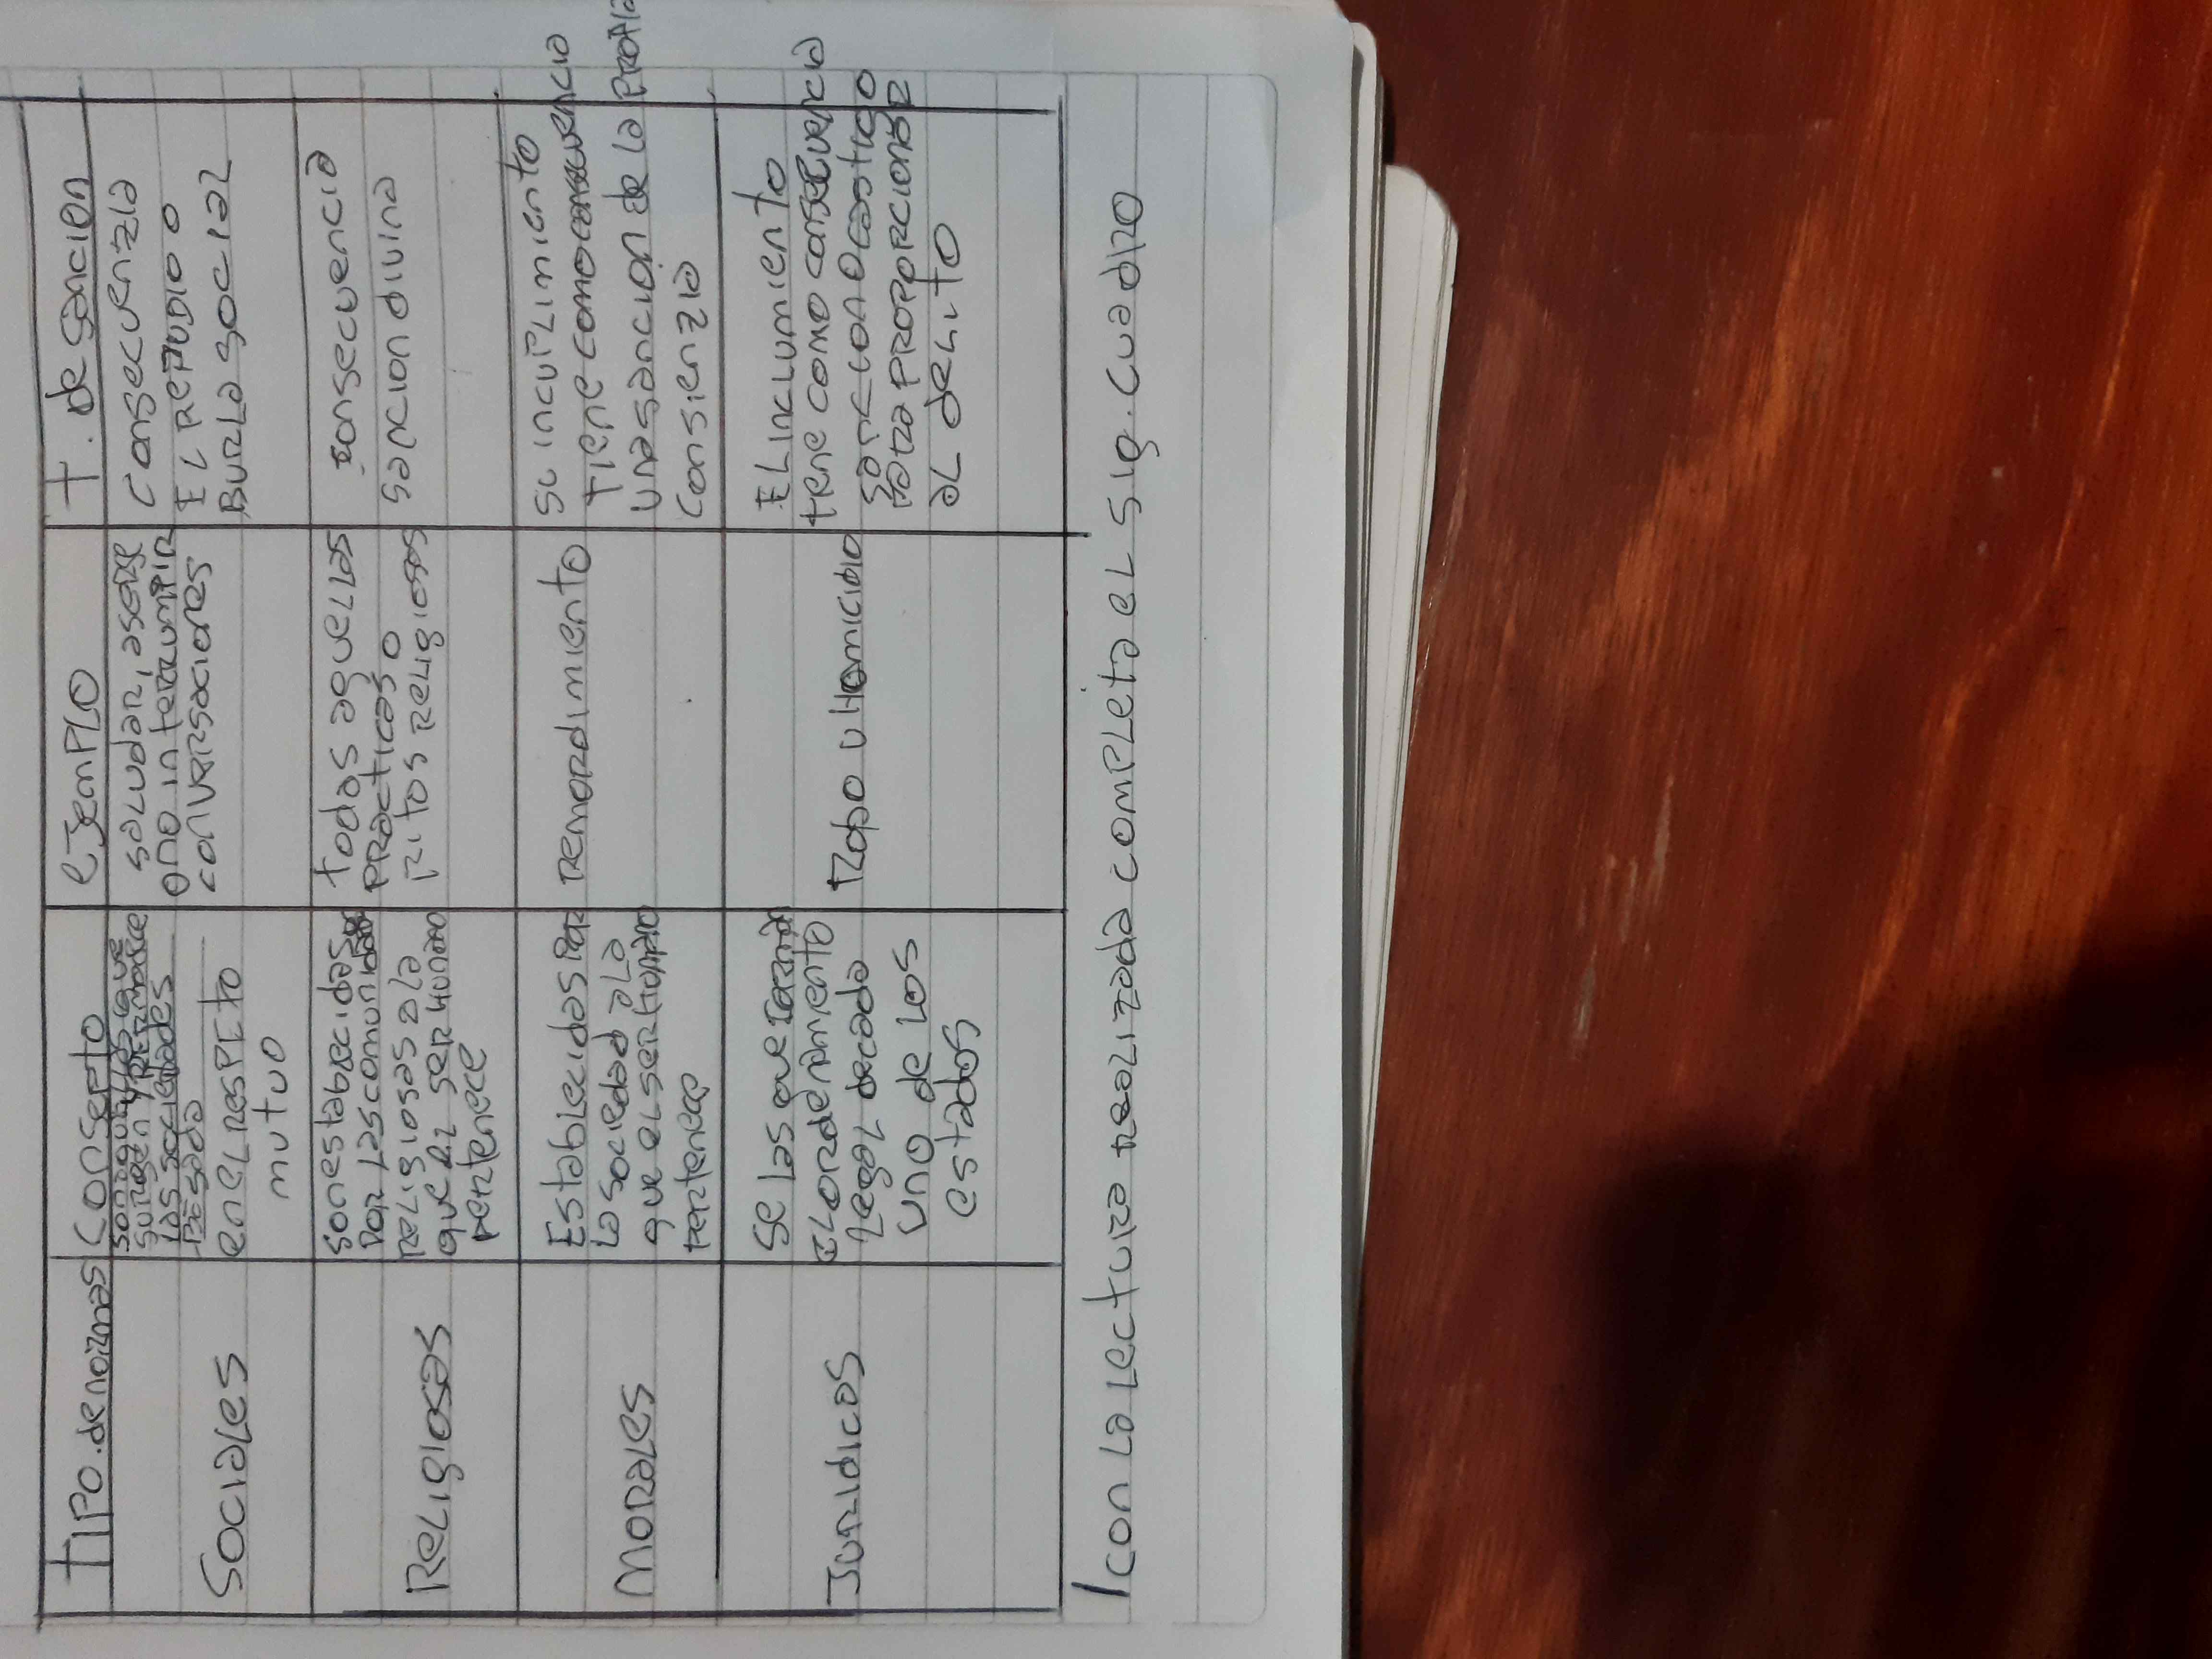 Tipo.denormas consepto ejemplo T. desancion
Sociales
son aquellas que
surgen y permanece
las sociedades
besada
enelrespeto
mutuo
saludar, aserse
o no interrumpir
conversaciones
consecuenzia
El repudio o
Burla social
Religiosas
sonestabecidas
por lascomunidades
religiosas a la
que el ser humano
pertenece
todas aquellas
practicas o
ritos religiosos
consecuencia
sancion divina
morales
Establecidas por
la sociedad a la
que el ser humano
pertenece
remordimiento
su incuplimiento
tiene como consecuencia
una sancion de la propia
consienzia
Juridicos
se las que
el ordenamiento
legal decada
uno de los
estados
robo u Homicidio
El inclumiento
tiene como consecuencia
o castigo
proporcionar
al delito
1 con la lectura realizada completa el sig. cuadro